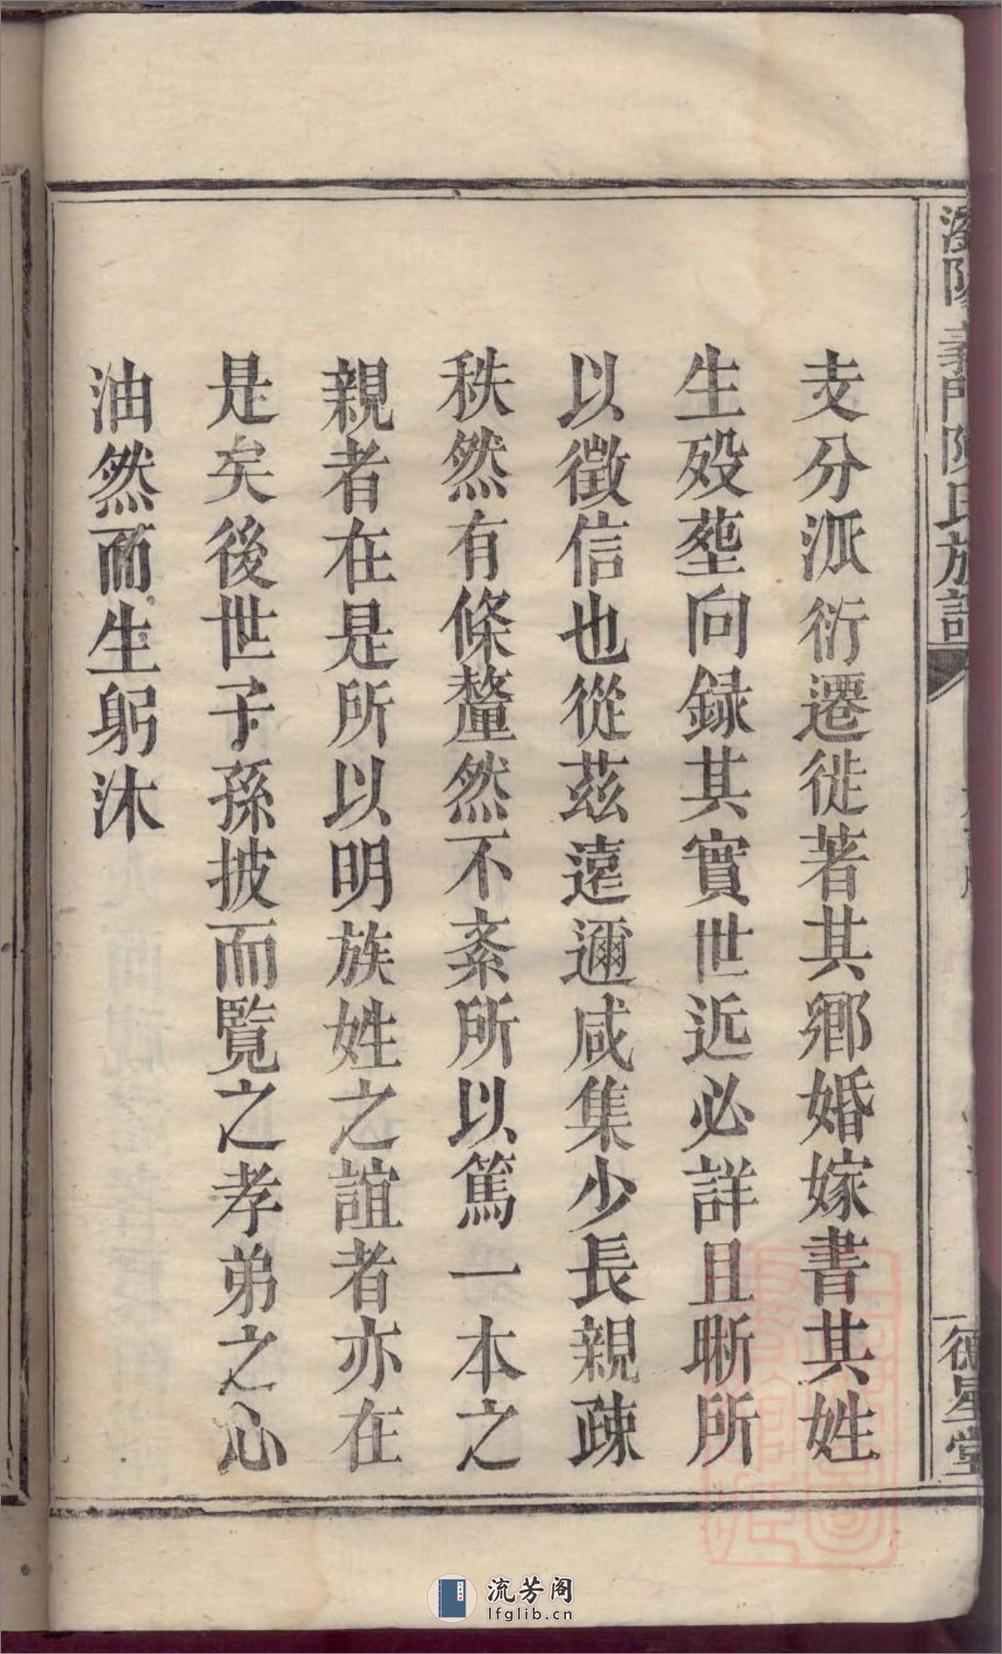 支分派衍遷徙著其鄉婚嫁書其姓
生殁塟向録其實世近必詳且晰所
以徵信也從茲遠邇咸集少長親疎
秩然有條釐然不紊所以篤一本之
親者在是所以明族姓之誼者亦在
是矣後世子孫披而覽之孝弟之心
油然而生躬沐
陽義門陳氏族譜
德星堂
流芳阁
lfglib.cn